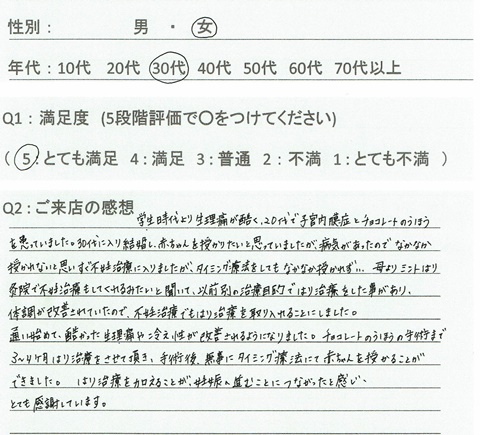 性別： 男 ・ 女
年代：10代 20代 30代 40代 50代 60代 70代以上
Q1：満足度 (5段階評価で〇をつけてください)
( 5：とても満足 4：満足 3：普通 2：不満 1：とても不満 )
Q2：ご来店の感想
学生時代より生理痛が酷く、20代で子宮内膜症とチョコレートのうほう
を患っていました。30代に入り結婚し、赤ちゃんを授かりたいと思っていましたが、病気があったのでなかなか
授かれないと思いすぐ不妊治療に入りましたが、タイミング療法をしてもなかなか授かれず… 母よりミントはり
灸院で不妊治療もしてくれるみたいと聞いて、以前別の治療目的ではり治療をした事があり、
体調が改善されていたので、不妊治療でもはり治療を取り入れることにしました。
通い始めて、酷かった生理痛や冷え性が改善されるようになりました。チョコレートのうほうの手術まで
3〜4ヶ月はり治療をさせて頂き、手術後、無事にタイミング療法にて赤ちゃんを授かることが
できました。 はり治療を加えることが、妊娠へ進むことにつながったと感じ、
とても感謝しています。